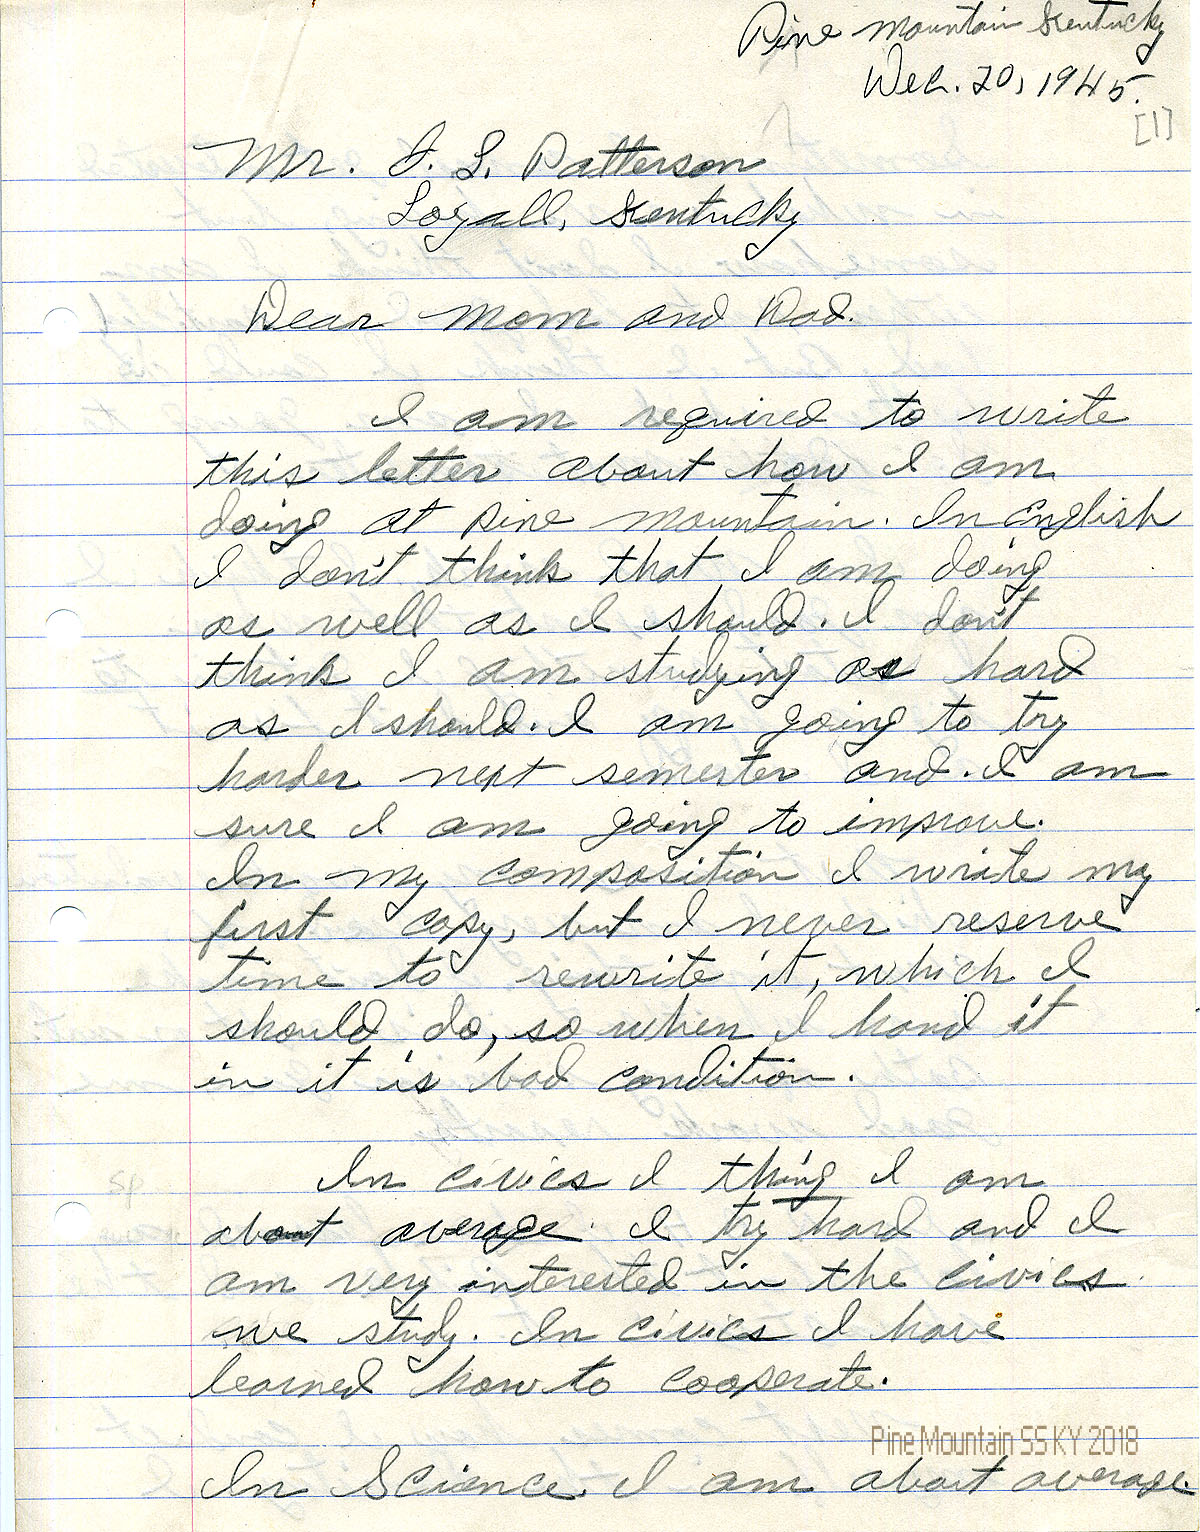 Pine Mountain Kentucky
Dec. 20, 1945.
[1]
Mr. I. L. Patterson
Loyall, Kentucky
Dear Mom and Dad.
I am required to write
this letter about how I am
doing at Pine Mountain. In English
I don't think that I am doing
as well as I should. I don't
think I am studying as hard
as I should. I am going to try
harder next semester and. I am
sure I am going to improve.
In my composition I write my
first copy, but I never reserve
time to rewrite it, which I
should do, so when I hand it
in it is bad condition.
In civics I thing I am
about average. I try hard and I
am very interested in the civics
we study. In civics I have
learned how to cooperate.
Pine Mountain SS KY 2018
In Science. I am about average.